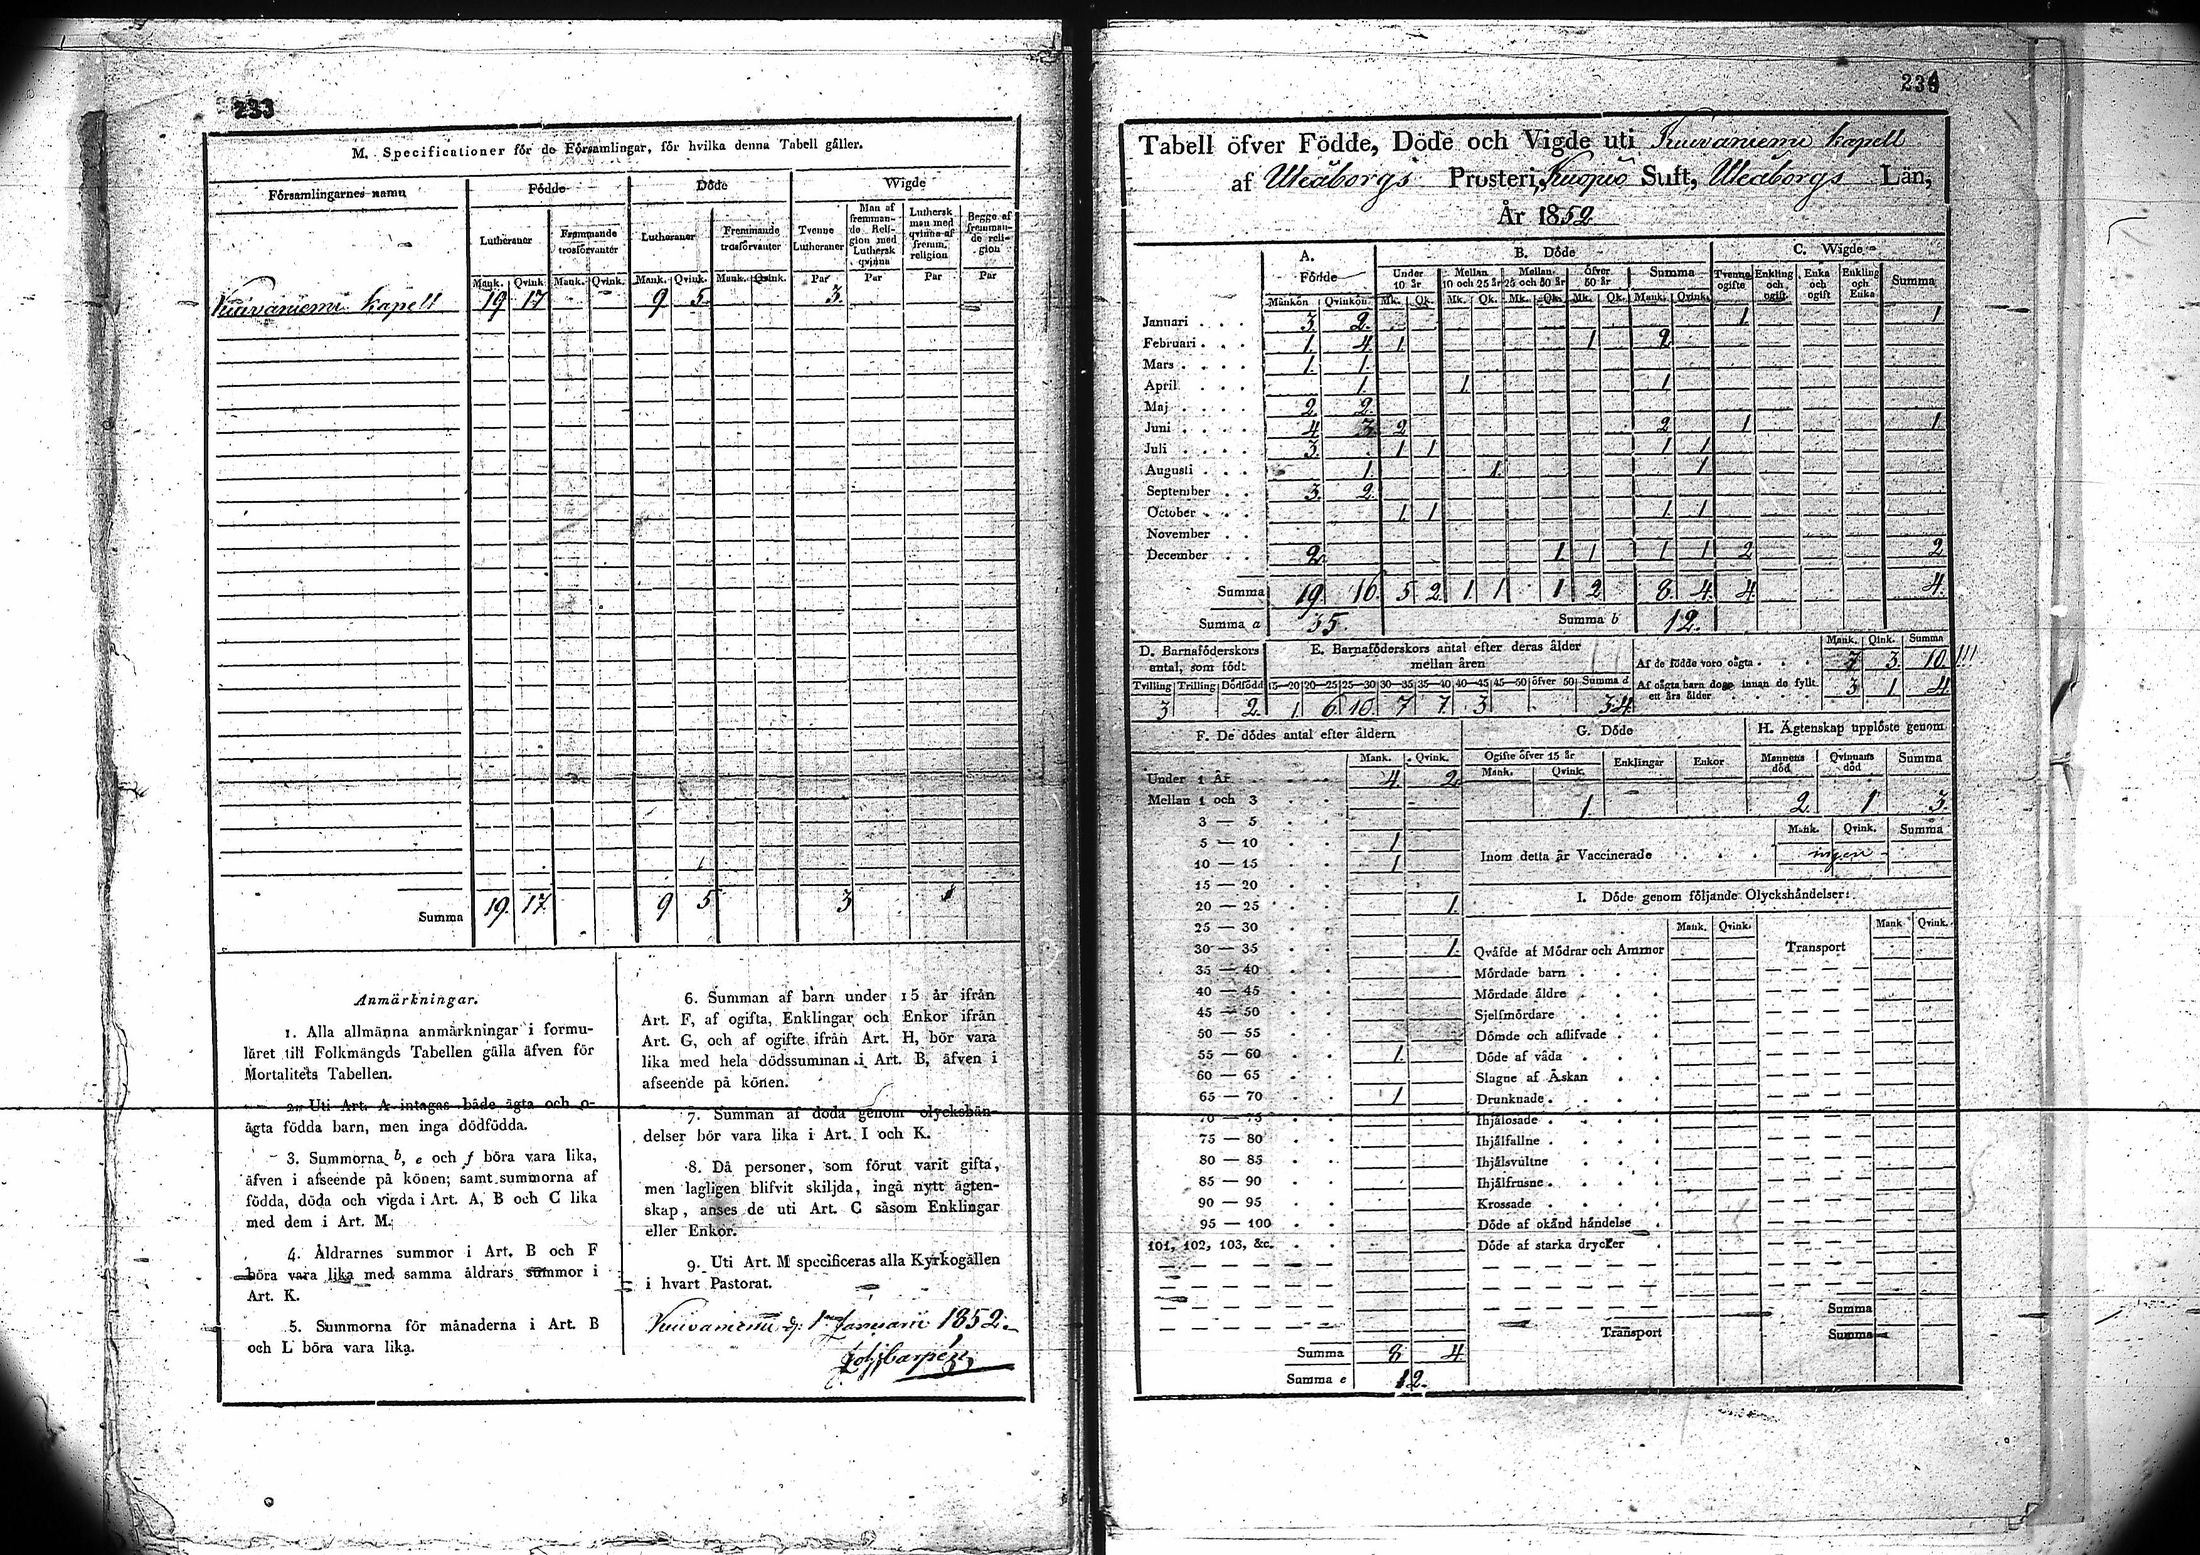 233
M. Specificationer för de Församlingar, för hvilka denna Tabell gäller.
Församlingarnes namn Födde Döde Wigde
Lutheraner Främmande trosförvanter Lutheraner Fremmande trosförvanter Tvenne Lutheraner Man af fremmande Religion med Luthersk qvinna Luthersk man med qvinna af fremm. religion Begge af fremmande religion
Mank. Qvink. Mank. Qvink. Mank. Qvink. Mank. Qvink. Par Par Par Par
Kuivaniemi kapell 19 17 9 5 3.
Summa 19. 17. 9 5 3
Anmärkningar.
1. Alla allmänna anmärkningar i formu-
läret till Folkmängds Tabellen gälla äfven för
Mortalitets Tabellen.
2. Uti Art. A intagas både ägta och o-
ägta födda barn, men inga dödfödda.
3. Summorna b, e och f böra vara lika,
äfven i afseende på könen; samt summorna af
födda, döda och vigda i Art. A, B och C lika
med dem i Art. M.
4. Åldrarnes summor i Art. B och F
böra vara lika med samma åldrars summor i
Art. K.
5. Summorna för månaderna i Art. B
och L böra vara lika.
6. Summan af barn under 15 år ifrån
Art. F, af ogifta, Enklingar och Enkor ifrån
Art. G, och af ogifte ifrån Art. H, bör vara
lika med hela dödssumman i Art. B, äfven i
afseende på könen.
7. Summan af döda genom olyckshän-
delser bör vara lika i Art. I och K.
8. Då personer, som förut varit gifta,
men lagligen blifvit skiljda, ingå nytt ägten-
skap, anses de uti Art. C såsom Enklingar
eller Enkor.
9. Uti Art. M specificeras alla Kyrkogällen
i hvart Pastorat.
Kuivaniemi d: 1 Januarii 1852.
Tabell öfver Födde, Döde och Vigde uti Kuivaniemi kapell
af Uleåborgs Prosteri, Kuopio Stift, Uleåborgs Län,
År 1852
A. Födde B. Döde C. Wigde
Under 10 år Mellan 10 och 25 år Mellan 25 och 50 år Öfver 50 år Summa Tvenne ogifte Enkling och ogift Enka och ogift Enkling och Enka Summa
Mankön Qvinkön Mk. Qk. Mk. Qk. Mk. Qk. Mk. Qk. Mank. Qvink.
Januari 3. 2. 1. 1
Februari 1. 4 1. 1 2.
Mars 1. 1.
April 1. 1. 1
Maj 2 2.
Juni 4 3. 2 2 1 1
Juli 3. 1 1 1 1
Augusti 1. 1. 1
September 3. 2.
October 1. 1 1 1
November
December 2. 1. 1 1 1 2 2
Summa 19 16 5 2 1 1 1 2 8 4 4 4.
Summa a 35. Summa b 12.
D. Barnaföderskors antal, som födt
Tvilling Trilling Dödfödd
3. 2.
E. Barnaföderskors antal efter deras ålder mellan åren
15—20 20—25 25—30 30—35 35—40 40—45 45—50 öfver 50 Summa d
1. 6. 10. 7 7. 3 34
Mank. Qink. Summa
Af de födde voro oägta 7 3. 10. !!!
Af oägta barn dogo innan de fyllt ett års ålder 3 1 4
F. De dödes antal efter åldern
Mank. Qvink.
Under 1 År 4. 2.
Mellan 1 och 3
3 — 5
5 — 10 1
10 — 15 1
15 — 20
20 — 25 1.
25 — 30
30 — 35 1.
35 — 40
40 — 45
45 — 50
50 — 55
55 — 60 1.
60 — 65
65 — 70 1
70 — 75
75 — 80
80 — 85
85 — 90
90 — 95
95 — 100
101, 102, 103, &c.
Summa 8 4.
Summa e 12.
G. Döde
Ogifte öfver 15 år Enklingar Enkor
Mank. Qvink.
1.
H. Ägtenskap upplöste genom
Mannens död Qvinnans död Summa
2. 1 3.
Mank. Qvink. Summa
Inom detta år Vaccinerade ingen
I. Döde genom följande Olyckshändelser:
Mank. Qvink. Mank Qvink.
Qväfde af Mödrar och Ammor Transport
Mördade barn
Mördade äldre
Sjelfmördare
Dömde och aflifvade
Döde af våda
Slagne af Åskan
Drunknade
Ihjälosade
Ihjälfallne
Ihjälsvultne
Ihjälfrusne
Krossade
Döde af okänd händelse
Döde af starka drycker
Summa
Transport Summa